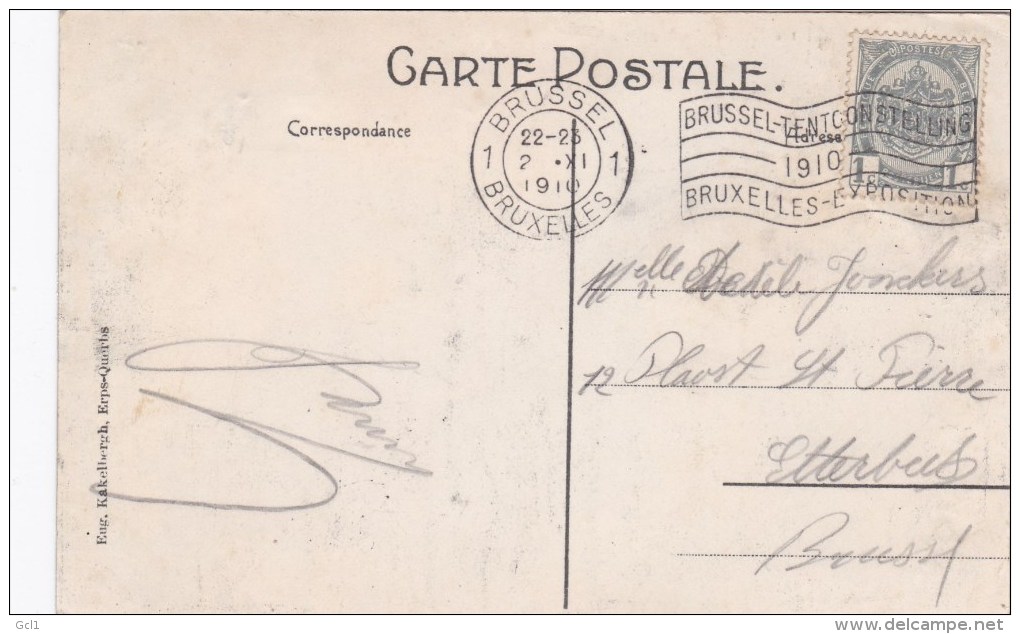 CARTE POSTALE.
Correspondance
Adresse
BRUSSEL
22-23
1 2 .XI 1
1910
BRUXELLES
BRUSSEL-TENTOONSTELLING
1910
BRUXELLES-EXPOSITION
POSTES
1 1
Melle Jonckers
12 St Pierre
Etterbeek
Brussel
Eug. Kakelbergh, Erps-Querbs
Gcl1
© delcampe.net